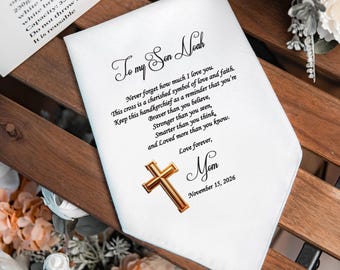 230g
white
It is reusable
To my Son Noah
Never forget how much I love you.
This cross is a cherished symbol of love and faith.
Keep this handkerchief as a reminder that you're
Braver than you believe,
Stronger than you seem,
Smarter than you think,
and Loved more than you know.
Love forever,
Mom
November 15, 2026